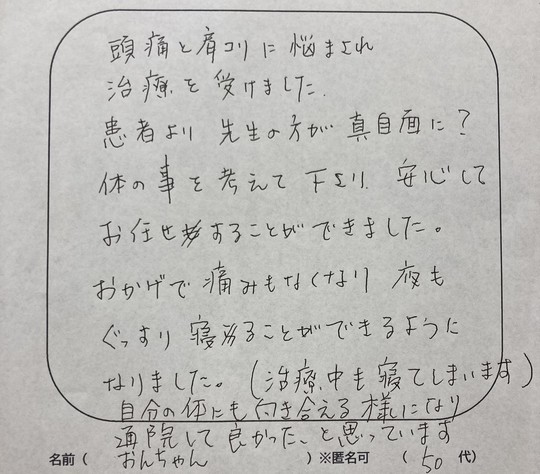 頭痛と肩コリに悩まされ
治療を受けました.
患者より 先生の方が 真自面に?
体の事を考えて下さり 安心して
お任せすることができました。
おかげで痛みもなくなり 夜も
ぐっすり 寝ることができるように
なりました。(治療中も寝てしまいます)
自分の体にも向き合える様になり
通院して良かった と思っています
名前( おんちゃん )※匿名可 ( 50 代)